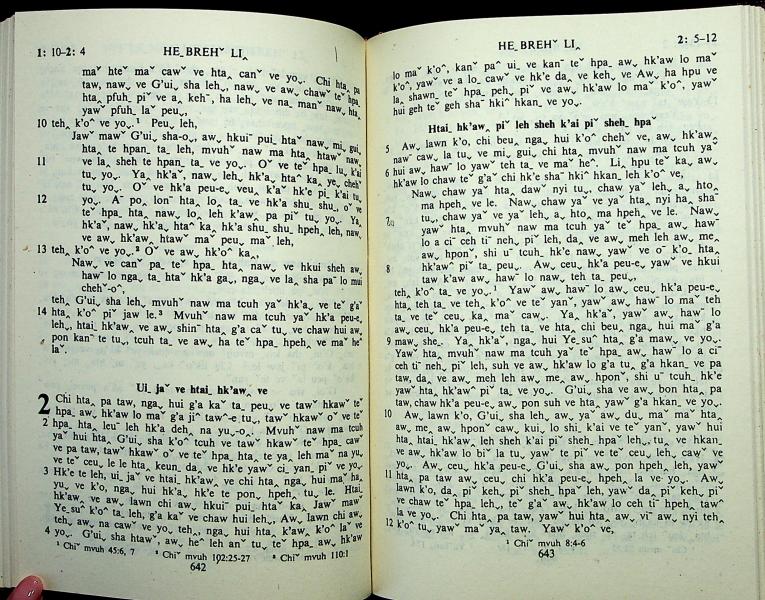 1: 10–2: 4
HE˯BREHˇ LI‸
maˇ hteˇ maˇ cawˇ ve hta‸ canˇ ve yo˯. Chi hta‸ pa
taw, naw˯ ve G'ui˯ sha leh˯, naw˯ ve aw˯ chawˇ teˇ hpa
hta‸ pfuh˯ piˇ ve a˯ kehˉ, ha leh˯ ve na˯ manˇ naw˯ hta‸
yawˇ pfuh˯ laˇ peu˯,
10 teh˯ k'o^ ve yo˯.¹ Peu˯ leh,
Jawˇ mawˇ G'ui˯ sha-o˯, aw˯ hkuiˉ pui˯ htaˇ naw˯ mi˯ gui˯
hta‸ te hpan˯ ta˯ leh, mvuhˇ naw ma hta‸ htawˇ naw˯
11 ve la˯ sheh te hpan˯ ta˯ ve yo˯. Oˇ ve teˇ hpa˯ lu˯ k'ai
tu˯ yo˯. Ya‸ hk'aˇ, naw˯ leh˯ hk'a˯ hta^ ka˯ ye˯ chehˇ
tu˯ yo˯. Oˇ ve hk'a peu-e˯ veu˯ k'aˇ hk'e pi˯ k'ai tu˯
12 yo˯. Aˉ po˯ lonˉ hta˯ lo˯ ta˯ ve hk'a shu˯ shu˯ oˇ ve
teˇ hpa˯ hta‸ naw˯ lo˯ leh k'aw˯ pa piˇ tu˯ yo˯. Ya‸
hk'aˇ, naw˯ hk'a˯ hta^ ka˯ hk'a shu˯ shu˯ hpeh˯ leh, naw˯
ve aw˯ hk'aw˯ htawˇ maˇ peu˯ maˇ leh,
13 teh˯ k'o^ ve yo˯.² Oˇ ve aw˯ hk'o^ ka‸,
Naw˯ ve canˇ paˉ teˇ hpa˯ hta‸ naw˯ ve hkui sheh aw˯
hawˉ lo nga˯ ta˯ htaˇ hk'a ga˯, nga˯ ve la‸ sha paˉ lo mui
chehˇ-o^,
teh˯ G'ui˯ sha leh˯ mvuhˇ naw ma tcuh yaˇ hk'a˯ ve teˇ g'aˇ
14 hta‸ k'o^ piˇ jaw le.³ Mvuhˇ naw ma tcuh yaˇ hk'a peu-e˯
leh˯, htai˯ hk'aw‸ ve aw˯ shinˉ hta‸ g'a caˇ tu˯ ve chaw hui aw˯
pon kanˉ te tu˯, tcuh ta˯ ve aw˯ ha teˇ hpa˯ hpeh‸ ve maˇ heˇ
laˇ.
Ui˯ jaˇ ve htai˯ hk'aw‸ ve
2 Chi hta‸ pa taw, nga˯ hui g'a kaˇ ta˯ peu˯ ve tawˇ hkawˇ teˇ
hpa˯ aw˯ hk'aw lo maˇ g'a jiˆ tawˉ-e tu˯, tawˇ hkawˇ oˇ ve teˇ
2 hpa˯ hta‸ leuˉ leh hk'a deh‸ na yu˯-o˯. Mvuhˇ naw ma tcuh
yaˇ hui hta‸ G'ui˯ sha k'o^ tcuh ve tawˇ hkawˇ teˇ hpa˯ cawˇ
ve pa taw, tawˇ hkawˇ oˇ ve teˇ hpa˯ hta‸ te ya‸ leh maˇ na yu˯
ve teˇ ceu˯ le le hta‸ keun˯ da˯ ve hk'e yawˇ ci˯ yan˯ piˇ ve yo˯.
3 Hk'e te leh, ui˯ jaˇ ve htai˯ hk'aw‸ ve chi hta‸ nga˯ hui maˇ ha˯
yu˯ ve k'o, nga˯ hui hk'a˯ hk'e te pon˯ hpeh˯ tu˯ le. Htai˯
hk'aw‸ ve aw˯ lawn chi aw˯ hkuiˉ pui˯ htaˇ ka‸ Jawˇ mawˇ
Ye˯suˇ k'o^ ta˯ leh, g'a kaˇ ve chaw hui leh˯, Aw˯ lawn chi aw˯
teh˯ aw˯ na cawˇ ve yo˯ teh˯, nga˯ hui hta‸ k'aw˯ k'o^ laˇ ve
4 yo˯. G'ui˯ sha htawˇ, aw˯ he^ leh anˇ tu˯ teˇ hpa˯ aw˯ hk'aw
¹ Chiˇ mvuh 45:6, 7 ² Chiˇ mvuh 102:25-27 ³ Chiˇ mvuh 110:1
642
HE˯BREHˇ LI‸
2: 5–12
lo maˇ k'o^, kanˇ pa^ ui˯ ve kanˉ teˇ hpa˯ aw˯ hk'aw lo maˇ
k'o^, yawˇ ve a lo˯ cawˇ ve hk'e da˯ ve keh˯ ve Aw˯ ha hpu ve
la‸ shawn˯ teˇ hpa˯ peh˯ piˇ ve aw˯ hk'aw lo maˇ k'o^, yawˇ
hui geh teˇ geh shaˉ hkiˆ hkan˯ ve yo˯.
Htai˯ hk'aw‸ piˇ leh sheh k'ai piˇ sheh˯ hpaˇ
5 Aw˯ lawn k'o, chi beu˯ nga˯ hui k'o^ chehˇ ve, aw˯ hk'aw˯
nawˉ caw˯ la tu˯ ve mi˯ gui˯ chi hta‸ mvuhˇ naw ma tcuh yaˇ
6 hui aw˯ hawˇ lo yawˇ teh ta˯ ve maˇ he^. Li‸ hpu teˇ ka˯ aw˯
hk'aw lo chaw teˇ g'aˇ chi hk'e shaˉ hkiˆ hkan˯ leh k'o^ ve,
Naw˯ chaw yaˇ hta‸ dawˇ nyi tu˯, chaw yaˇ leh˯ a˯ hto‸
ma hpeh˯ ve le. Naw˯ chaw yaˇ ve yaˇ hta‸ nyi ha˯ shaˉ
tu˯, chaw yaˇ ve yaˇ leh˯ a˯ hto‸ ma hpeh˯ ve le. Naw˯
7 yawˇ hta‸ mvuhˇ naw ma tcuh yaˇ teˇ hpa˯ aw˯ hawˉ
lo a ciˉ ceh tiˉ neh˯ piˇ leh, da˯ ve aw˯ meh leh aw˯ me˯
aw˯ hponˇ, shi uˉ tcuh˯ hk'e naw˯ yawˇ ve oˉ k'o˯ hta‸
8 hk'awˇ piˇ ta˯ peu˯. Aw˯ ceu˯ hk'a peu-e˯ yawˇ ve hkui
taw k'aw aw˯ hawˉ lo naw˯ teh ta˯ peu˯,
teh˯ k'o^ ta˯ ve yo˯. Yawˇ aw˯ hawˉ lo aw˯ ceu˯ hk'a peu-e˯
hta‸ teh ta˯ ve teh˯ k'o^ ve teˇ yanˇ, yawˇ aw˯ hawˉ lo maˇ teh
ta˯ ve teˇ ceu˯ ka˯ maˇ caw˯. Ya‸ hk'aˇ, yawˇ aw˯ hawˉ lo
aw˯ ceu˯ hk'a peu-e˯ teh ta˯ ve hta‸ chi beu˯ nga˯ hui maˇ g'a
9 maw˯ she˯. Ya‸ hk'aˇ, nga˯ hui Ye˯suˇ hta‸ g'a maw˯ ve yo˯.
Yawˇ hta‸ mvuhˇ naw ma tcuh yaˇ teˇ hpa˯ aw˯ hawˉ lo a ciˉ
ceh tiˉ neh˯ piˇ leh, suh ve aw˯ hk'aw lo g'a tu˯ g'a hkan˯ ve pa
taw, da˯ ve aw˯ meh leh aw˯ me˯ aw˯ hponˇ, shi uˉ tcuh˯ hk'e
yawˇ hta‸ hk'awˇ piˇ ta˯ ve yo˯. G'ui˯ sha ve aw˯ bon hta‸ pa
taw, chaw hk'a peu-e˯ aw˯ pon suh ve hta‸ yawˇ g'a hkan˯ ve yo˯.
10 Aw˯ lawn k'o, G'ui˯ sha leh˯ aw˯ yaˇ aw˯ du˯ maˇ maˇ hta‸
aw˯ me˯ aw˯ hponˇ cawˇ kui˯ lo shi˯ k'ai ve teˇ yanˇ, yawˇ hui
hta‸ htai˯ hk'aw‸ leh sheh k'ai piˇ sheh˯ hpaˇ leh˯, tu˯ ve hkan˯
ve aw˯ hk'aw lo biˇ la tu˯ yawˇ te piˇ ve teˇ ceu˯ leh˯ cawˇ ve
yo˯. Aw˯ ceu˯ hk'a peu-e˯ G'ui˯ sha aw˯ pon hpeh˯ leh, yawˇ
11 hta‸ pa taw aw˯ ceu˯ chi hk'a peu-e˯ hpeh˯ la ve yo˯. Aw˯
lawn k'o, da˯ piˇ keh˯ piˇ sheh˯ hpaˇ leh, yawˇ da˯ piˇ keh˯ piˇ
ve chaw teˇ hpa˯ leh˯, teˇ g'aˇ ve aw˯ hk'aw lo ceh tiˉ hpeh˯ tawˆ
la ve yo˯. Chi hta‸ pa taw, yawˇ hui hta‸ aw˯ viˉ aw˯ nyi teh˯
12 k'o^ tu˯ yawˇ maˇ ya‸ taw. Yawˇ k'o^ ve,
¹ Chiˇ mvuh 8:4-6
643